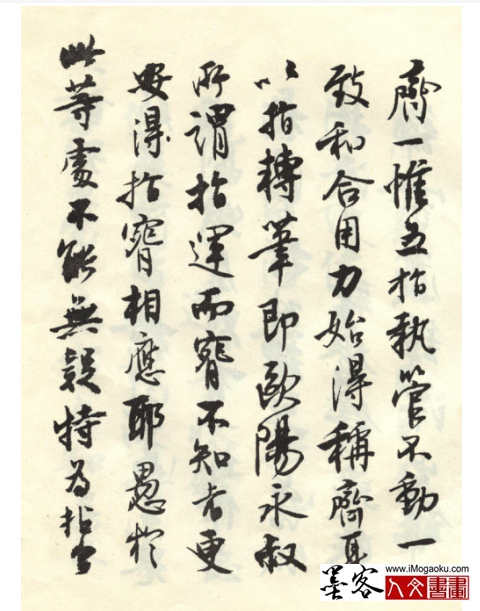 齊一惟五指執管不動一
致和合用力始得稱齊耳
以指轉筆即歐陽永叔
所謂指運而腕不知者更
安得指腕相應耶愚於
此等處不能無疑特為拈出
www.iMogaoku.com
墨客人文書畫